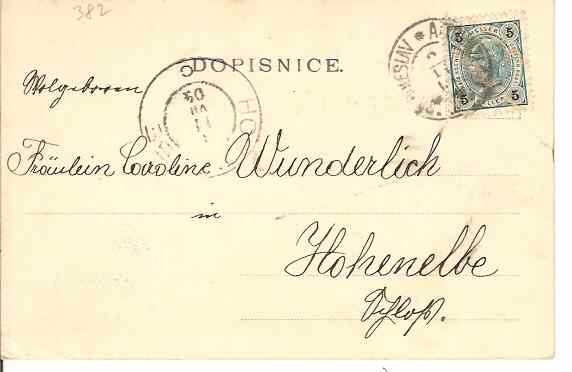 382
DOPISNICE.
Wolgeboren
Fräulein Caroline Wunderlich
in
Hohenelbe
Schloß.
5 5
5 5
HO
04